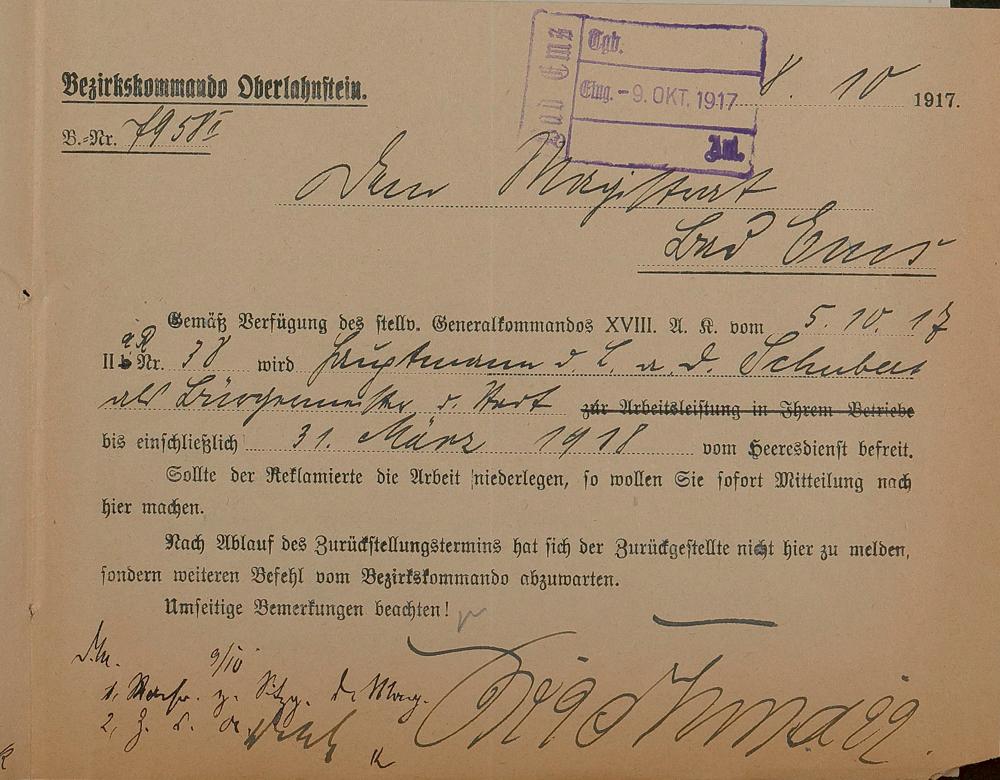 Bad Ems
Tgb.
Eing. - 9. OKT. 1917
Anl.
Bezirkskommando Oberlahnstein.
8. 10 1917.
B.-Nr. 7958 I
Dem Magistrat
Bad Ems
Gemäß Verfügung des stellv. Generalkommandos XVIII. A. K. vom 5. 10. 17
II b Nr. 38 wird Hauptmann d. L. a. D. Schubert
als Bürgermeister d. Stadt zur Arbeitsleistung in Ihrem Betriebe
bis einschließlich 31. März 1918 vom Heeresdienst befreit.
Sollte der Reklamierte die Arbeit niederlegen, so wollen Sie sofort Mitteilung nach
hier machen.
Nach Ablauf des Zurückstellungstermins hat sich der Zurückgestellte nicht hier zu melden,
sondern weiteren Befehl vom Bezirkskommando abzuwarten.
Umseitige Bemerkungen beachten!
9/10
1, z. Sitzg. d. Mag.
2, z. d. A.